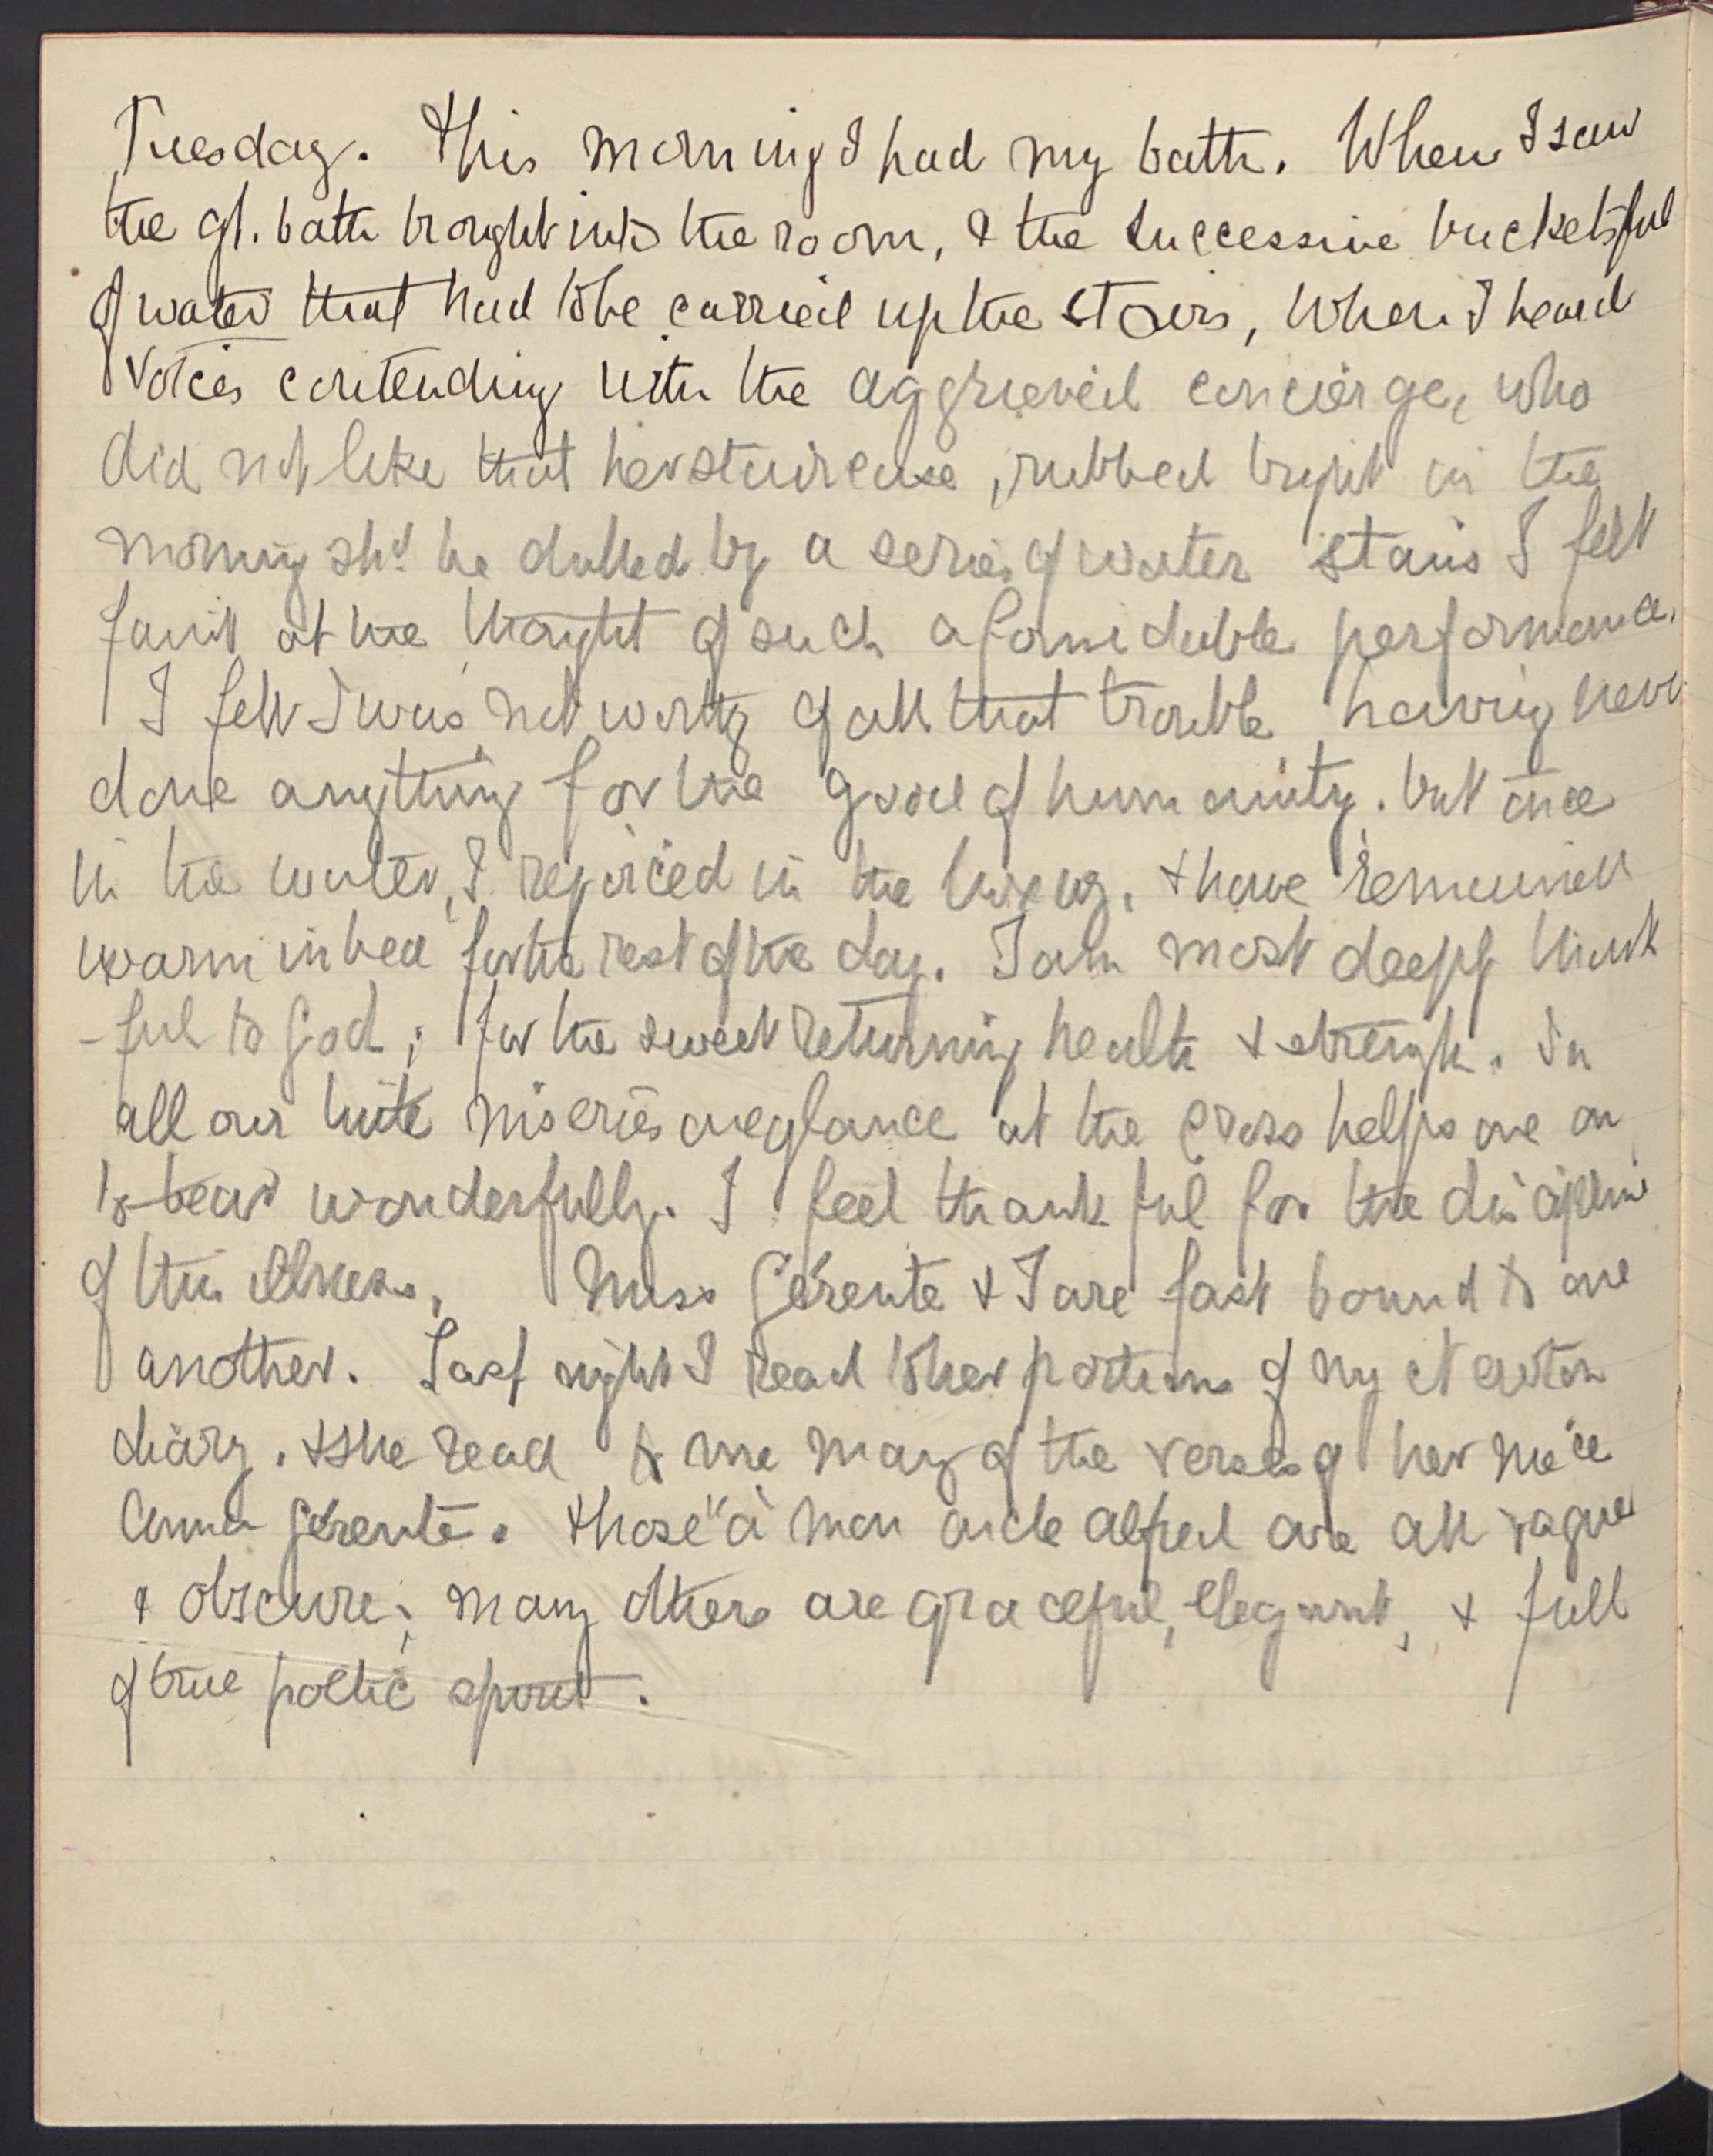 Tuesday. This morning I had my bath. When I saw
the gt. bath brought into the room, & the successive bucketsful
of water that had to be carried up the stairs, when I heard
voices contending with the aggrieved concierge, who
did not like that her staircase, rubbed bright in the
morning shd be dulled by a series of water stains I felt
faint at the thought of such a formidable performance.
I felt I was not worthy of all that trouble having never
done anything for the good of humanity. but once
in the water, I rejoiced in the luxury, & have remained
warm in bed for the rest of the day. I am most deeply thank
-ful to God; for the sweet returning health & strength. In
all our little miseries one glance at the cross helps one on
to bear wonderfully. I feel thankful for the discipline
of this illness. Miss Gérente & I are fast bound to one
another. Last night I read to her portions of my Newton
diary. & she read to me many of the verses of her niece
Anna Gérente. those "à mon oncle Alfred are all vague
& obscure; many others are graceful, elegant, & full
of true poetic spirit.